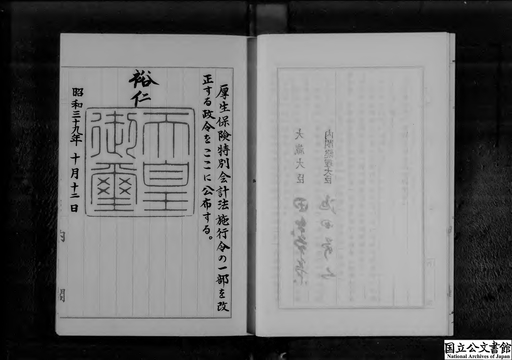 厚生保険特別会計法施行令の一部を改
正する政令をここに公布する。
裕仁
天皇
御璽
昭和三十九年十月十二日
内閣
内閣総理大臣
大蔵大臣
国立公文書館
National Archives of Japan